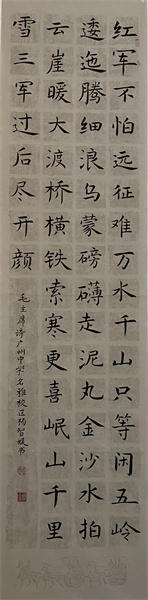 红军不怕远征难万水千山只等闲五岭
逶迤腾细浪乌蒙磅礴走泥丸金沙水拍
云崖暖大渡桥横铁索寒更喜岷山千里
雪三军过后尽开颜
毛主席诗广州中学名雅校区杨智媛书